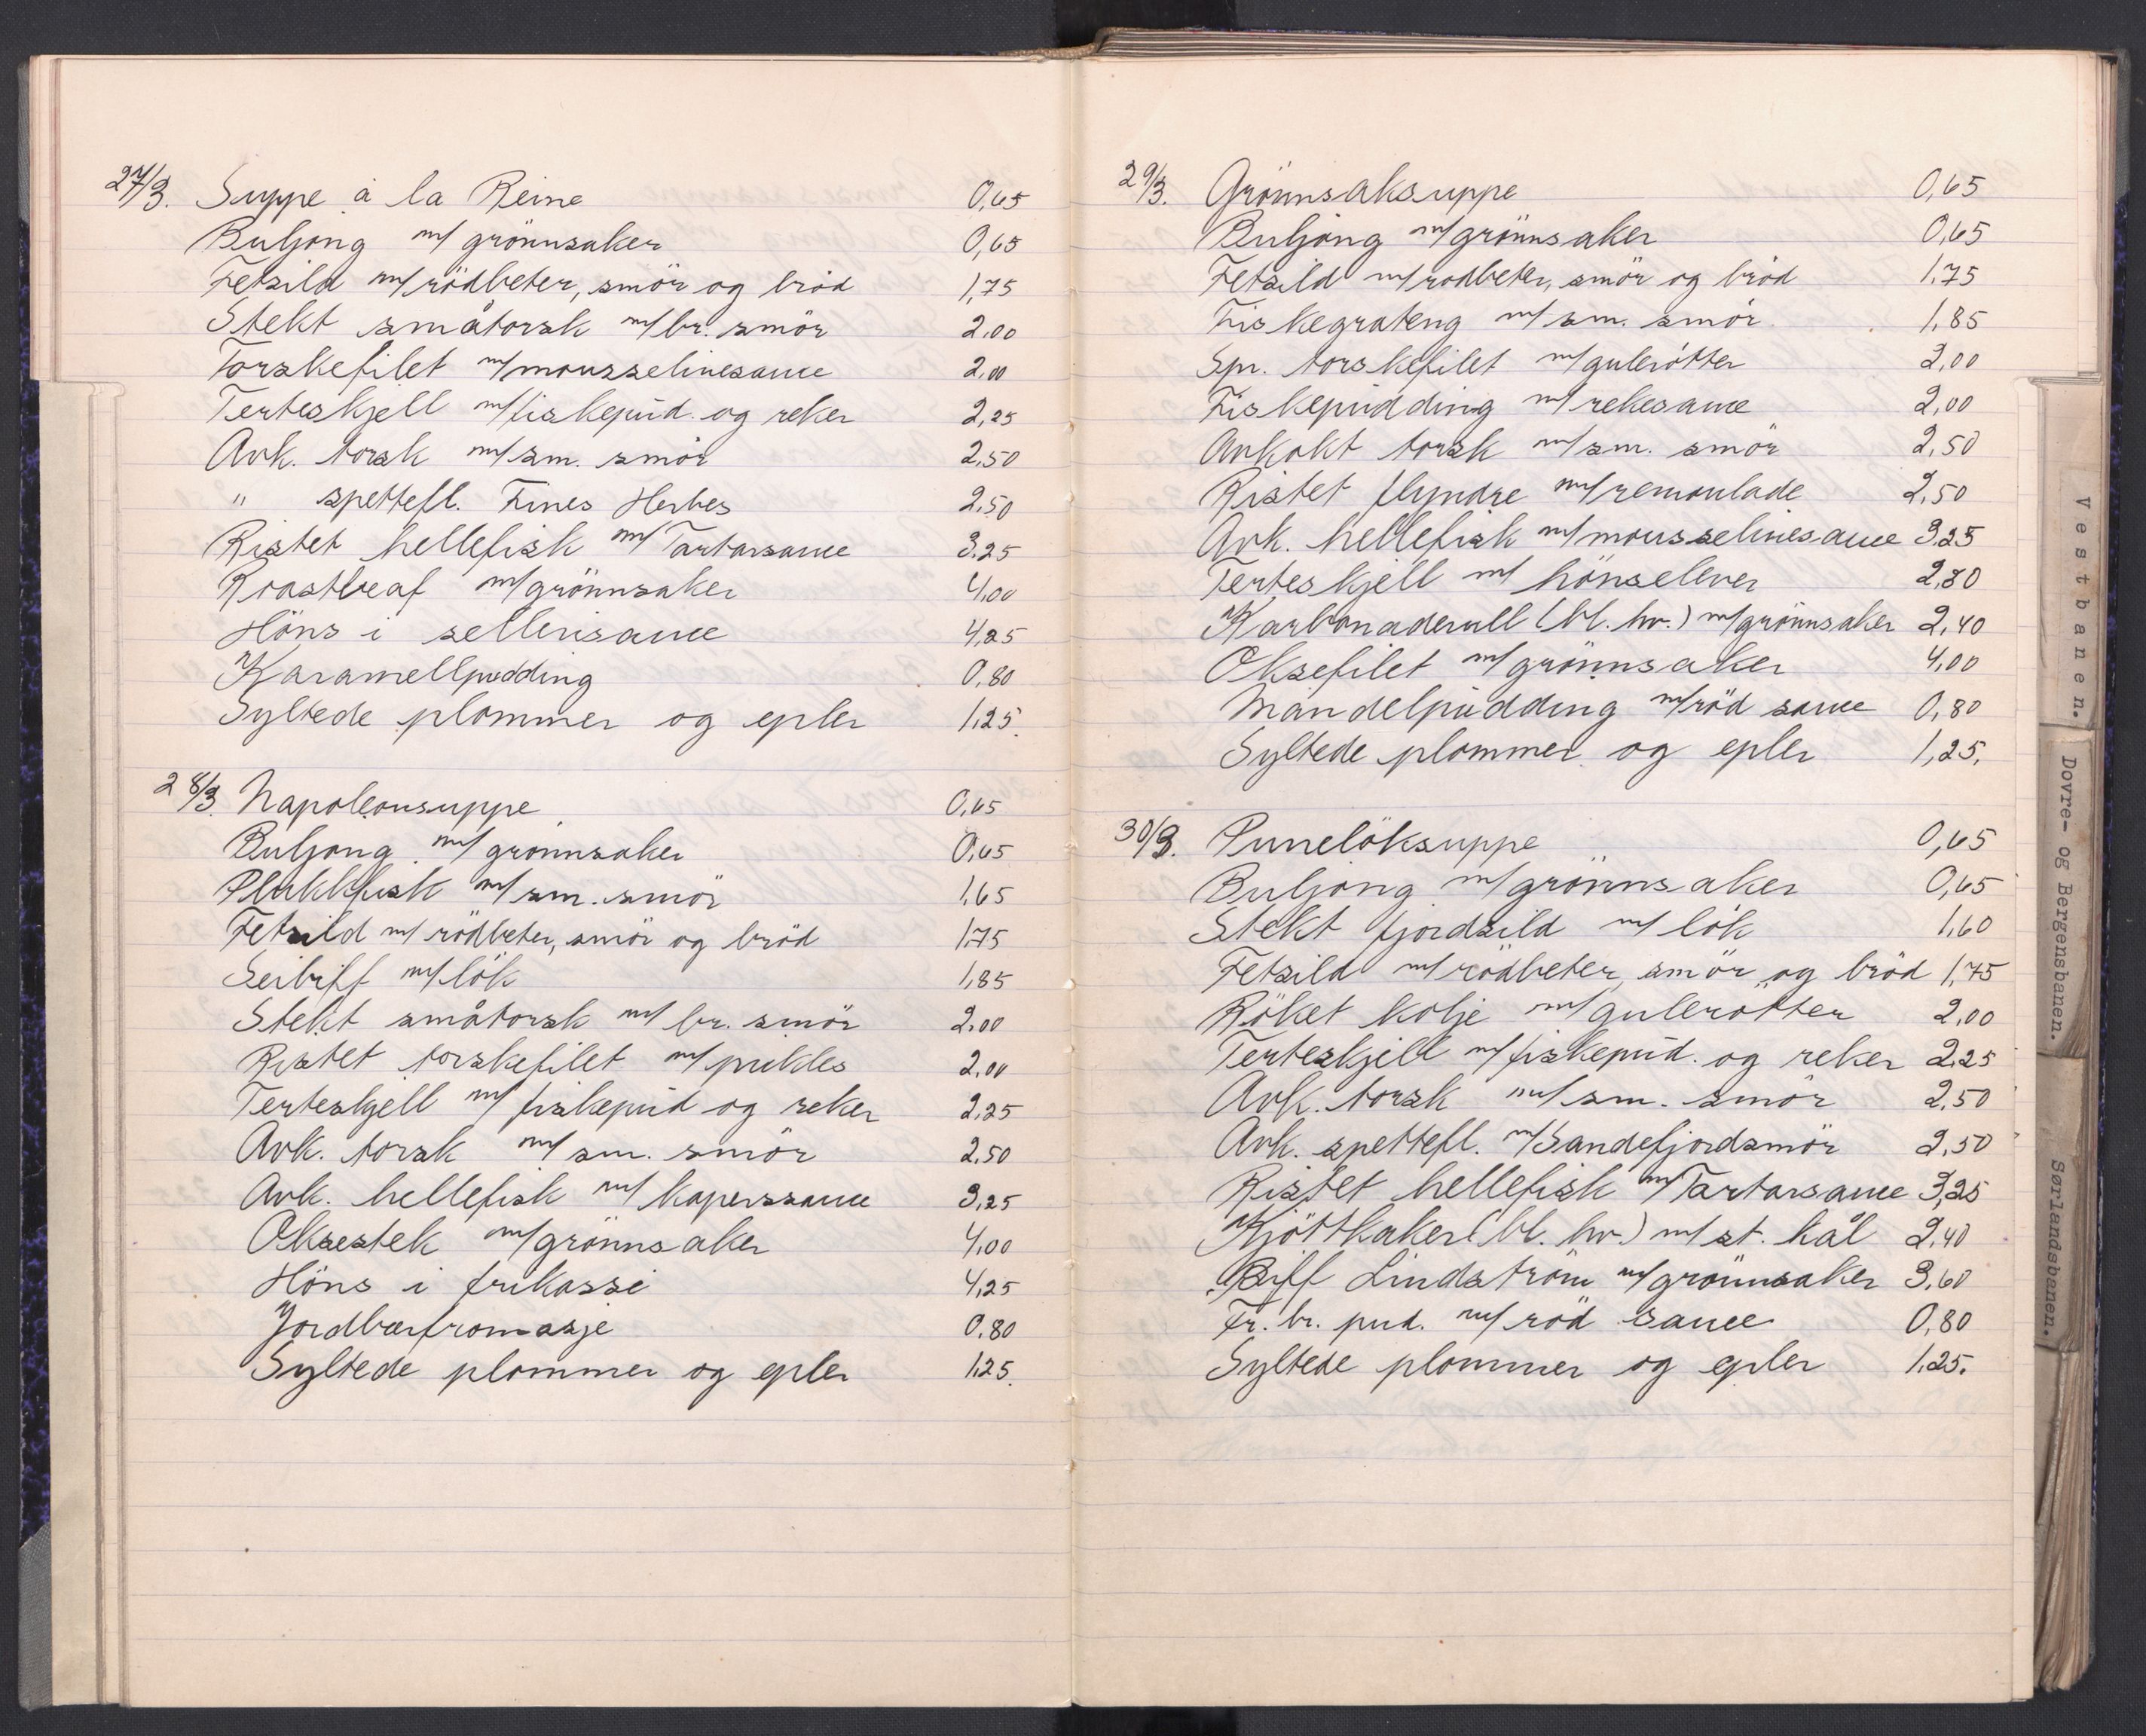 27/3. Suppe à la Reine 0,65
Buljong m/ grönnsaker 0,65
Fetsild m/rödbeter, smör og bröd 1,75
Stekt småtorsk m/br. smör 2,00
Torskefilet m/mousselinesauce 2,00
Terteskjell m/fiskepud. og reker 2,25
Avk. torsk m/sm. smör 2,50
" spettefl. Fines Herbes 2,50
Ristet hellefisk m/Tartarsauce 3,25
Roastbeaf m/grönnsaker 4,00
Höns i sellerisauce 4,25
Karamellpudding 0,80
Syltede plommer og epler 1,25.
28/3. Napoleonsuppe 0,65
Buljong m/ grönnsaker 0,65
Plukkfisk m/sm. smör 1,65
Fetsild m/ rödbeter, smör og bröd 1,75
Seibiff m/lök 1,85
Stekt småtorsk m/ br. smör 2,00
Ristet torskefilet m/pickles 2,00
Terteskjell m/ fiskepud og reker 2,25
Avk. torsk m/ sm. smör 2,50
Avk. hellefisk m/ kaperssauce 3,25
Oksestek m/grönnsaker 4,00
Höns i frikassé 4,25
Jordbærfromasje 0,80
Syltede plommer og epler 1,25.
29/3. Grönnsaksuppe 0,65
Buljong m/grönnsaker 0,65
Fetsild m/rödbeter, smör og bröd 1,75
Fiskegrateng m/sm. smör 1,85
Spr. torskefilet m/gulerötter 2,00
Fiskepudding m/rekesauce 2,00
Avkokt torsk m/sm. smör 2,50
Ristet flyndre m/remoulade 2,50
Avk. hellefisk m/mousselinesauce 3,25
Terteskjell m/ hönselever 2,80
Karbonaderull (bl. hv.) m/grönnsaker 2,40
Oksefilet m/grönnsaker 4,00
Mandelpudding m/röd sauce 0,80
Syltede plommer og epler 1,25.
30/3. Purrelöksuppe 0,65
Buljong m/grönnsaker 0,65
Stekt fjordsild m/ lök 1,60
Fetsild m/rödbeter, smör og bröd 1,75
Röket kolje m/gulerötter 2,00
Terteskjell m/fiskepud. og reker 2,25
Avk. torsk m/sm. smör 2,50
Avk. spettefl. m/Sandefjordsmör 2,50
Ristet hellefisk m/Tartarsauce 3,25
Kjöttkaker (bl. hv.) m/st. kål 2,40
Biff Lindström m/grönnsaker 3,60
Fr. br. pud. m/röd sauce 0,80
Syltede plommer og epler 1,25.
Vestbanen.
Dovre- og Bergensbanen.
Sørlandsbanen.